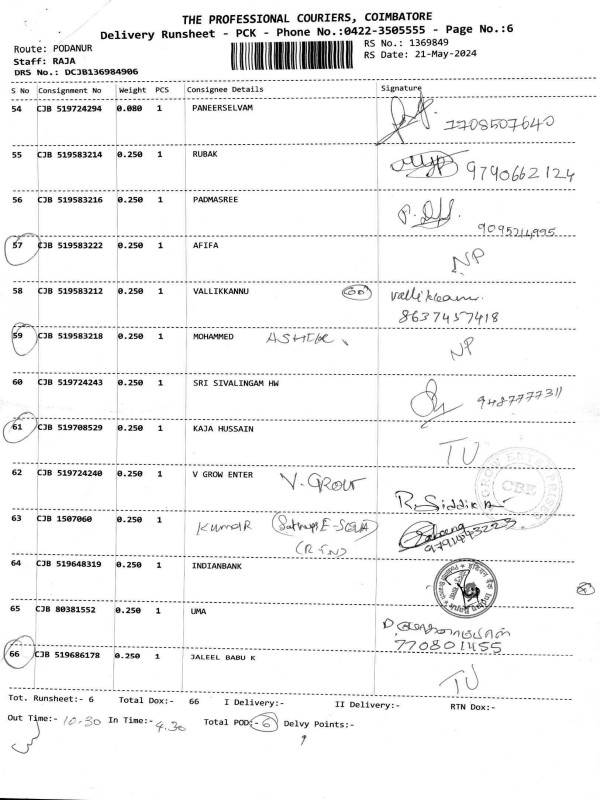 THE PROFESSIONAL COURIERS, COIMBATORE
Delivery Runsheet - PCK - Phone No.:0422-3505555 - Page No.:6
Route: PODANUR RS No.: 1369849
Staff: RAJA RS Date: 21-May-2024
DRS No.: DCJB136984906
S No Consignment No Weight PCS Consignee Details Signature
54 CJB 519724294 0.080 1 PANEERSELVAM 1708507640
55 CJB 519583214 0.250 1 RUBAK 9790662124
56 CJB 519583216 0.250 1 PADMASREE 9095214995
57 CJB 519583222 0.250 1 AFIFA NP
58 CJB 519583212 0.250 1 VALLIKKANNU vallikkannu
8637457418
59 CJB 519583218 0.250 1 MOHAMMED ASHIK NP
60 CJB 519724243 0.250 1 SRI SIVALINGAM HW 9487777311
61 CJB 519708529 0.250 1 KAJA HUSSAIN TU
62 CJB 519724240 0.250 1 V GROW ENTER V. GROW R. Siddik
CBE
63 CJB 1507060 0.250 1 KUMAR E-SEVA 9791493223
(RTN)
64 CJB 519648319 0.250 1 INDIANBANK
65 CJB 80381552 0.250 1 UMA
770801455
66 CJB 519686178 0.250 1 JALEEL BABU K TU
Tot. Runsheet:- 6 Total Dox:- 66 I Delivery:- II Delivery:- RTN Dox:-
Out Time:- 10.30 In Time:- 4.30 Total POD:- 6 Delvy Points:-